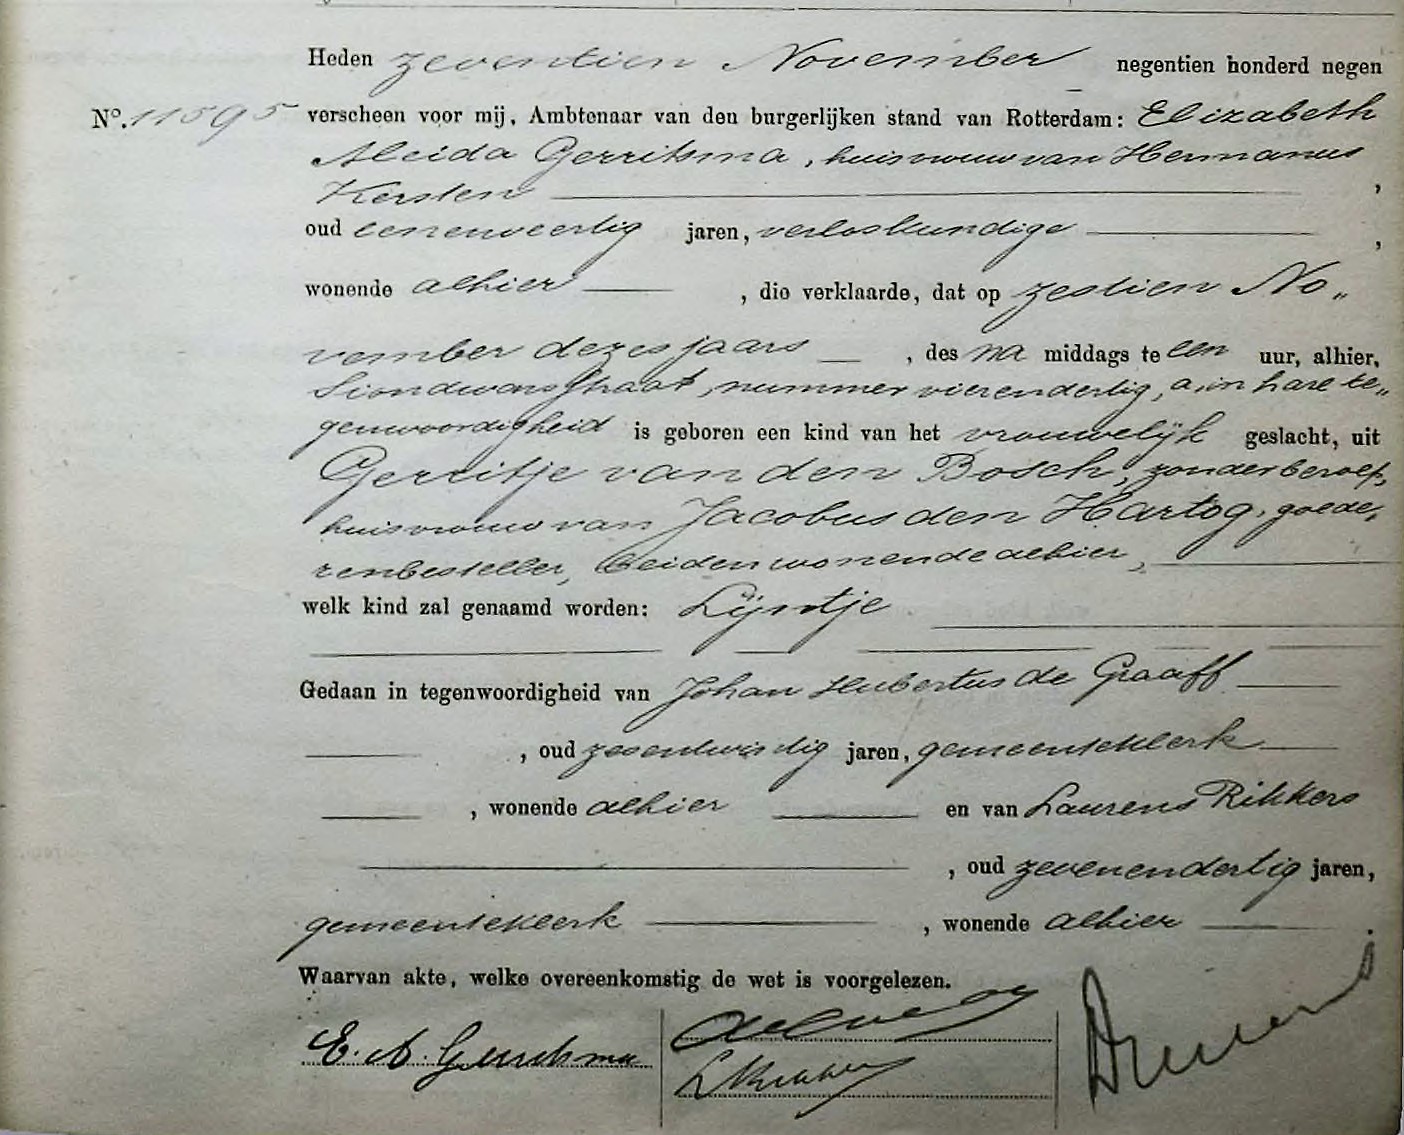 Heden zeventien November negentien honderd negen
No. 11595 verscheen voor mij, Ambtenaar van den burgerlijken stand van Rotterdam: Elizabeth
Aleida Gerritsma, huisvrouw van Hermanus
Kersten,
oud eenenveertig jaren, verloskundige,
wonende alhier, die verklaarde, dat op zestien No„
vember dezes jaars, des na middags te een uur, alhier,
nummer vierendertig, in hare te„
genwoordigheid is geboren een kind van het vrouwelijk geslacht, uit
Gerritje van den Bosch, zonder beroep,
huisvrouw van Jacobus den Hartog, goede„
renbesteller, beiden wonende alhier,
welk kind zal genaamd worden: Lijntje
Gedaan in tegenwoordigheid van Johan Hubertus de Graaff
, oud jaren, gemeenteklerk
, wonende alhier en van Laurens Rikkers
, oud zevenendertig jaren,
gemeenteklerk, wonende alhier.
Waarvan akte, welke overeenkomstig de wet is voorgelezen.
E. A. Gerritsma